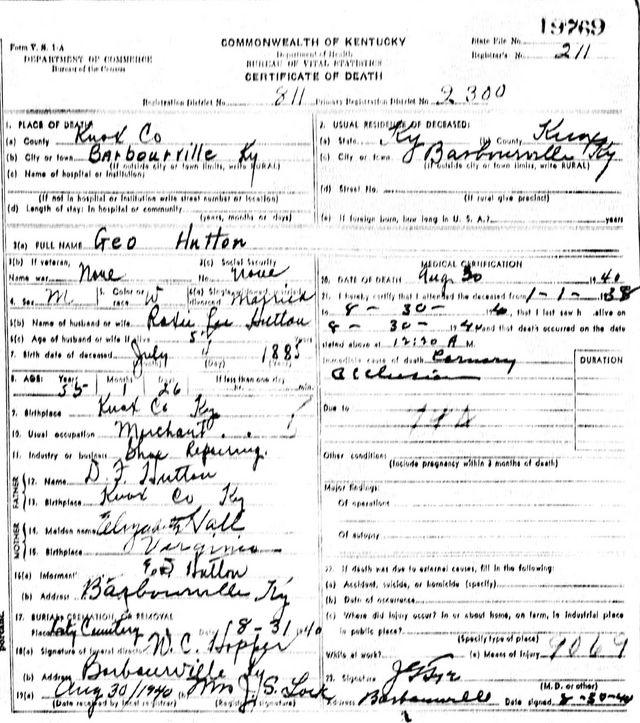 19769
Form V. S. 1-A
DEPARTMENT OF COMMERCE
Bureau of the Census
COMMONWEALTH OF KENTUCKY
Department of Health
BUREAU OF VITAL STATISTICS
CERTIFICATE OF DEATH
State File No.
Registrar's No. 211
Registration District No. 811 Primary Registration District No. 2300
1. PLACE OF DEATH
(a) County Knox Co
(b) City or town Barbourville Ky
(If outside city or town limits, write RURAL)
(c) Name of hospital or institution:
(If not in hospital or institution write street number or location)
(d) Length of stay: In hospital or community
(years, months or days)
2. USUAL RESIDENCE OF DECEASED:
(a) State Ky (b) County Knox
(c) City or town Barbourville Ky
(If outside city or town limits, write RURAL)
(d) Street No.
(If rural give precinct)
(e) If foreign born, how long in U. S. A.? years
3(a) FULL NAME Geo Hutton
3(b) If veteran, Name war None
3(c) Social Security No. none
4. Sex M 5. Color or race W 6(a) Single, widowed, married, divorced Married
6(b) Name of husband or wife Hutton
6(c) Age of husband or wife if alive
7. Birth date of deceased July 4 1885
(Day) (Year)
8. AGE: Years 55 Months 1 Days 26 If less than one day
hr. min.
9. Birthplace Knox Co Ky
10. Usual occupation Merchant
11. Industry or business Shoe Repairing.
FATHER
12. Name D. F. Hutton
13. Birthplace Knox Co Ky
MOTHER
14. Maiden name Elizabeth Hall
15. Birthplace Virginia
16(a) Informant Hutton
(b) Address Barbourville Ky
17. BURIAL, CREMATION, OR REMOVAL
Place City Cemetery Date 8-31 1940
18(a) Signature of funeral director W. C. Hopper
(b) Address Barbourville Ky
19(a) Aug 30/1940 (b) Mrs J. S. Lock
(Date received by local registrar) (Registrar's signature)
MEDICAL CERTIFICATION
20. DATE OF DEATH Aug 30 1940
21. I hereby certify that I attended the deceased from 1-1-1938
to 8-30-40, that I last saw h alive on
8-30-1940 and that death occurred on the date
stated above at 12:20 A M.
Immediate cause of death Coronary
Occlusion
DURATION
Due to
Other conditions
(Include pregnancy within 3 months of death)
Major findings:
Of operations
Of autopsy
22. If death was due to external causes, fill in the following:
(a) Accident, suicide, or homicide (specify)
(b) Date of occurrence
(c) Where did injury occur? In or about home, on farm, in industrial place
in public place?
(Specify type of place)
While at work? (e) Means of injury 9069
23. Signature
(M. D. or other)
Address Barbourville Date signed 8-30-40